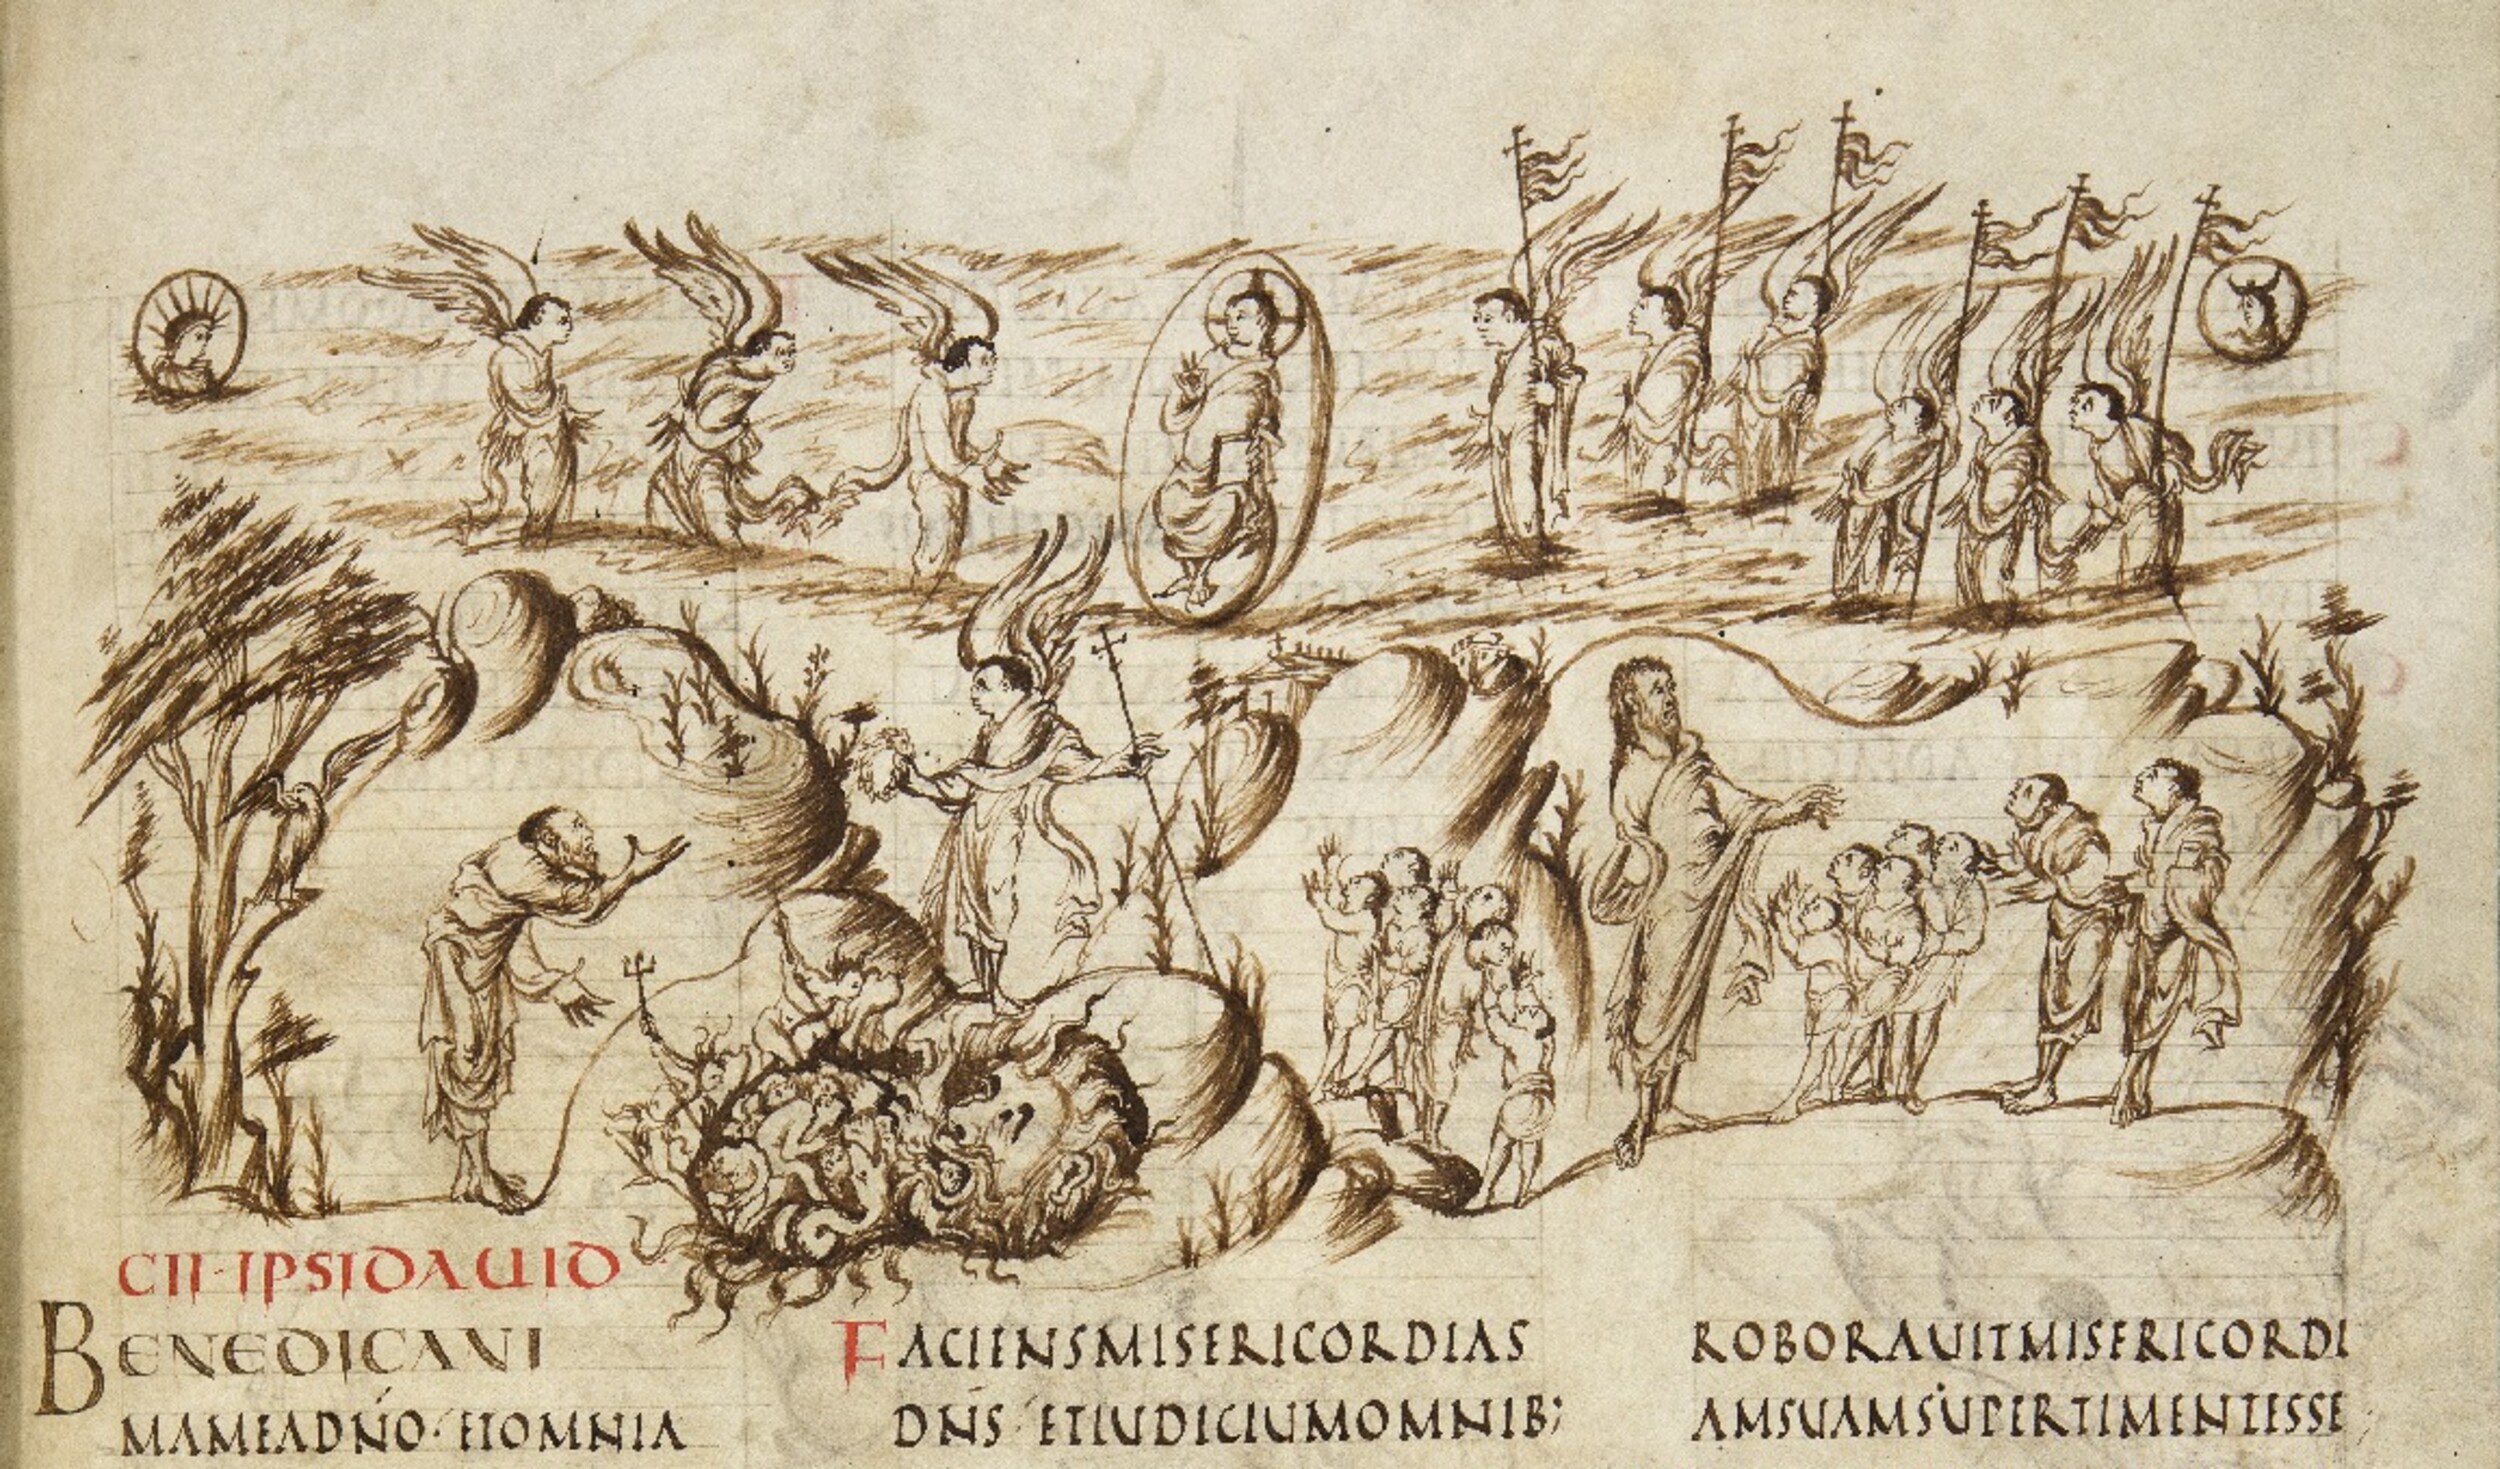 CII·IPSIDAUID
BENEDICANI
MAMEADNO·ETOMNIA
FACIENSMISERICORDIAS
DNS·ETIUDICIUMOMNIB;
ROBORAUITMISERICORDI
AMSUAMSUPERTIMENTESSE